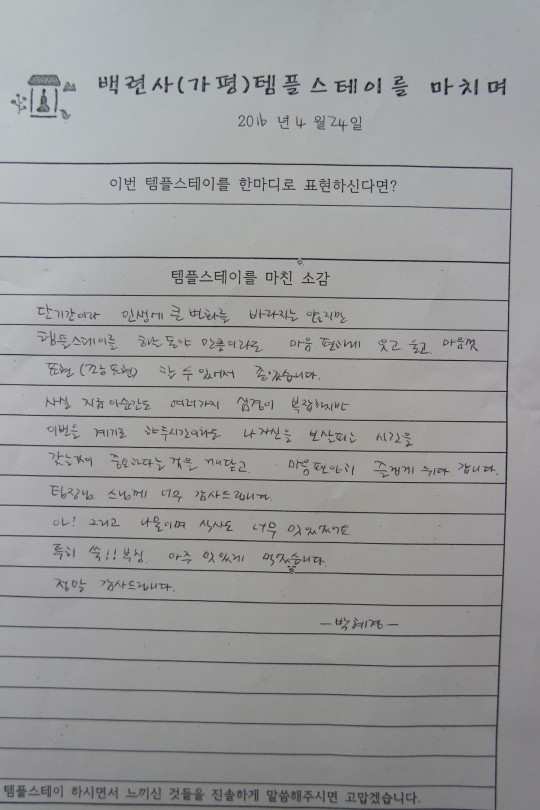 백련사(가평)템플스테이를 마치며
2016 년 4 월 24 일
이번 템플스테이를 한마디로 표현하신다면?
템플스테이를 마친 소감
단기간이라 인생에 큰 변화를 바라지는 않지만
템플스테이를 하는 동안 만큼이라도 마음 편하게 웃고 울고 마음껏
표현(감정표현) 할 수 있어서 좋았습니다.
사실 지금 이순간도 여러가지 심경이 복잡하지만
이번을 계기로 한두시간이라도 나 자신을 보살피는 시간을
갖는것이 중요하다는 것을 깨닫고 마음편안히 즐겁게 쉬다 갑니다.
팀장님, 스님께 너무 감사드립니다.
아! 그리고 나물이며 식사도 너무 맛있었구요
특히 쑥!! 부침. 아주 맛있게 먹었습니다.
정말 감사드립니다.
-박혜경-
템플스테이 하시면서 느끼신 것들을 진솔하게 말씀해주시면 고맙겠습니다.